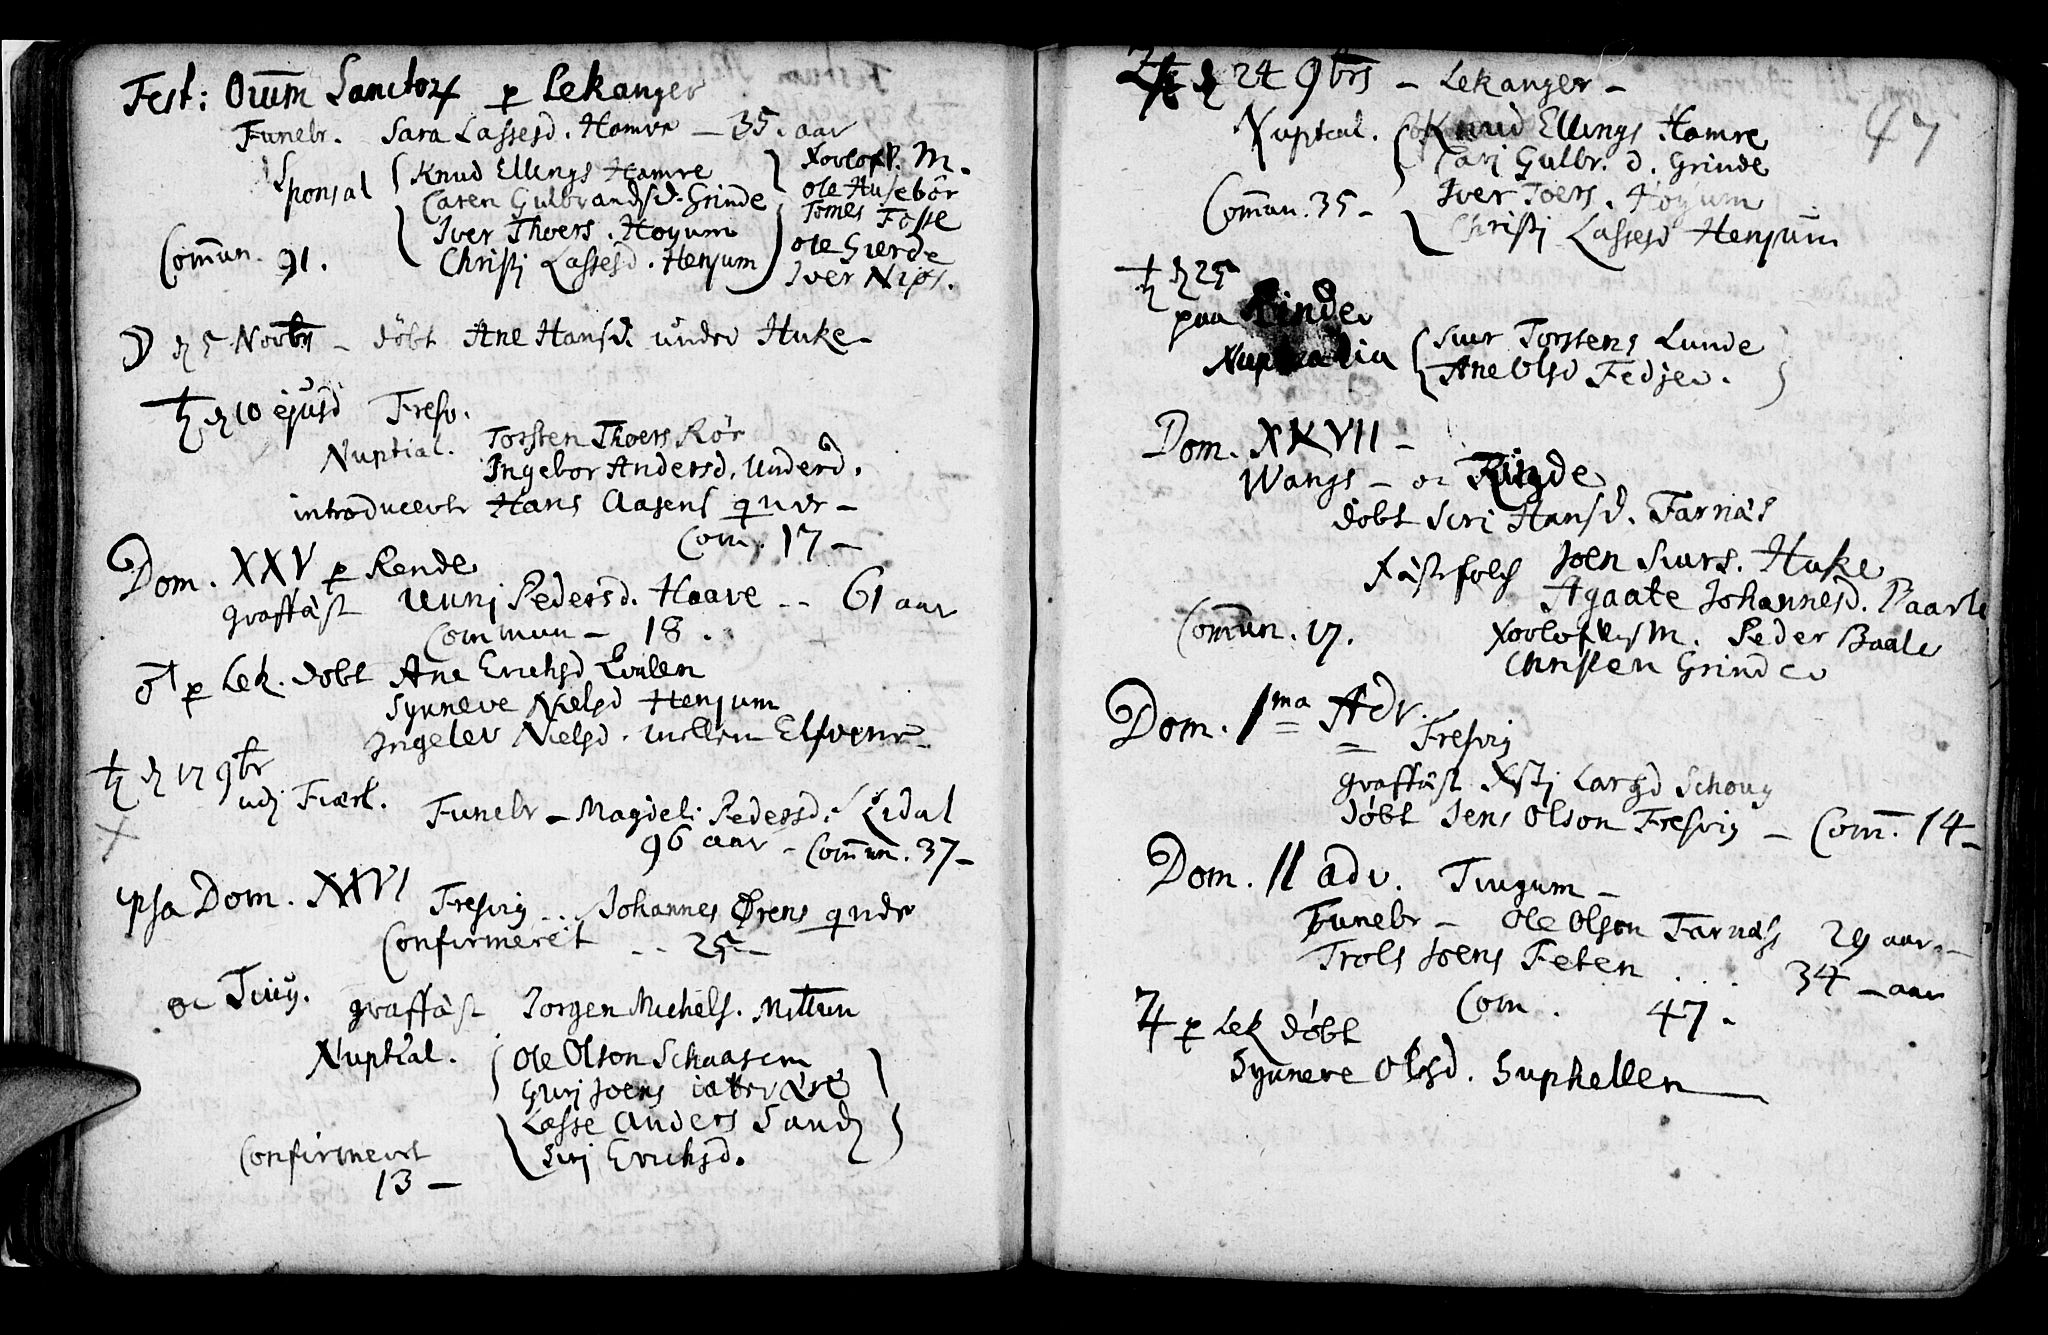 Fest: Om̅m Sanctor p Lekanger
Funebr. Sara Lassesd. Hamre – 35. aar
Sponsal Knud Ellings Hamre
Caren Gulbrandsd. Grinde
Iver Thoers. Høyum
Christj Lassesd. Henjum
Xovlofv. M.
Ole Husebör
Tomes Fosse
Ole Gierde
Iver Nips.
Com̅un. 91.
d 5 Novbr – döbt Ane Hansd. under Huke
d 10 ejusd Fresv.
Nuptial. Torsten Thoers Rör
Ingebor Andersd. Underd.
introduceert Hans Aasens qvir –
Com. 17 –
Dom. XXV p Rende
graffäst Uunj Pedersd. Haave -- 61 aar
Commun – 18.
p Lek. döbt Ane Erichsd Qvalen
Synneve Nielsd Henjum
Ingelev Nielsd. mellem Elfvene
d 17 9br
udj Fiærl. Funebr – Magdel: Pedersd.
96 aar – Com̅un. 37 –
ipsa Dom. XXVI Fresvig .. Johannes Ørens qvde
Confirmerit -- 25 –
oc Tiug. graffäst Jorgen Michels. Mittun
Nuptial. Ole Olson Schaasem
Gurj Joens
Lasse Anders Sand
Sirj Erichsd.
Confirmeert
13 –
47
d 24 9brs – Lekanger –
Nuptial. Knud Ellings Hamre
Carj Gulbr. d. Grinde
Com̅un. 35 – Iver Toers. Höyum
Christj Lassesd Henjum
d 25
paa Rinde
Nuptialia Siur Torstens Lunde
Ane Olsd Fedje.
Dom. XXVII –
Wangs – oc Rinde
döbt Siri Hansd. Farnäs
Fästefolch Joen Siurs. Huke
Agaate Johannesd. Baarle
Com̅un. 17. Xovlofv. M. Peder Baale
Christen Grinde
Dom. 1ma Adv.
Fresvig
graffäst Xstj Larsd Schoug
döbt Jens Olson Fresvig – Com̅. 14 –
Dom. II adv. Tiugum –
Funebr – Ole Olson Farnäs 29 aar. –
Trols Joens Feten . 34 – aar
Com. 47.
p Lek döbt
Synneve Olsd. Suphellen